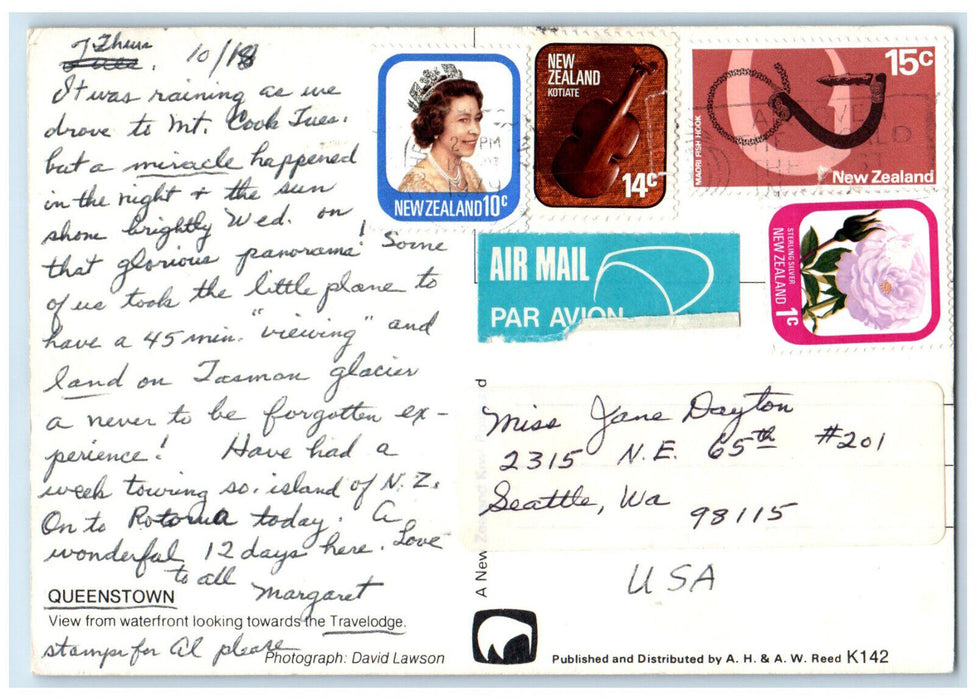 Thurs
Tues. 10/18
It was raining as we
drove to Mt. Cook Tues.
but a miracle happened
in the night + the sun
shone brightly Wed. on
that glorious panorama! Some
of us took the little plane to
have a 45 min. "viewing" and
land on Tasman glacier
a never to be forgotten ex-
perience! Have had a
week touring so. island of N.Z.
On to Rotorua today. A
wonderful 12 days here. Love
to all
Margaret
QUEENSTOWN
View from waterfront looking towards the Travelodge.
stamps for Al please
Photograph: David Lawson
NEW ZEALAND 10c
NEW
ZEALAND
KOTIATE
14c
15c
MAORI FISH HOOK
New Zealand
PM
AIR MAIL
PAR AVION
STERLING SILVER
NEW ZEALAND
1c
Miss Jane Dayton
2315 N.E. 65th #201
Seattle, Wa
98115
USA
A New Zealand
Published and Distributed by A. H. & A. W. Reed K142